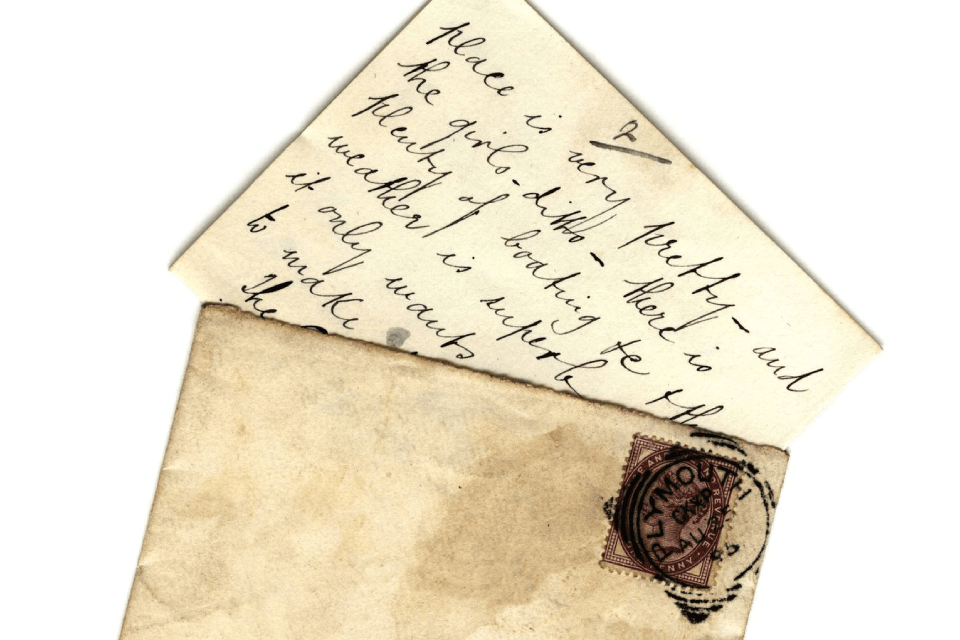 2
place is very pretty – and
the girls – ditto – there is
plenty of boating &c & the
weather is superb
it only wants
to make
The
PLYMOUTH
AU
REVENUE